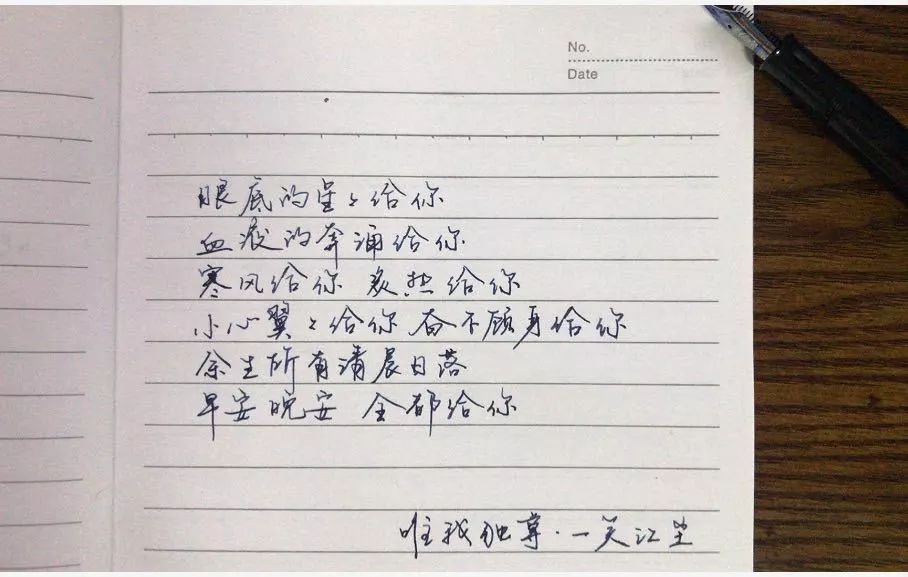 No.
Date
眼底的星々给你
血液的奔涌给你
寒风给你 炙热给你
小心翼々给你 奋不顾身给你
余生所有清晨日落
早安晚安 全都给你
唯我独尊·一笑江尘